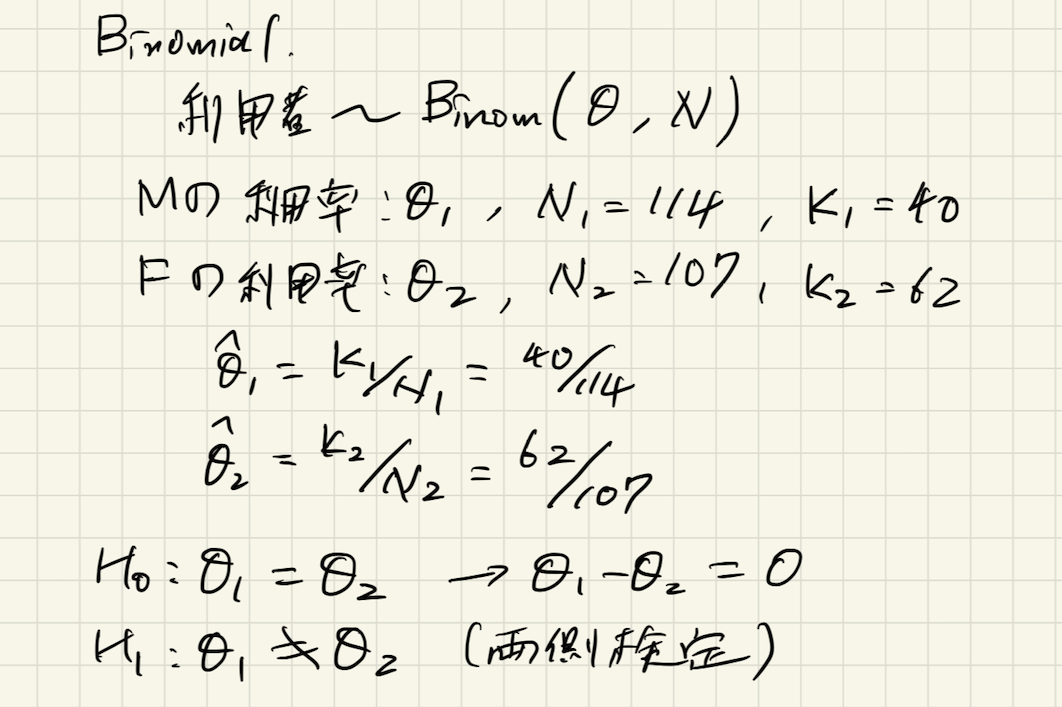 Binomial.
利用者 ~ Binom(θ, N)
Mの利用率:θ₁, N₁=114, K₁=40
Fの利用率:θ₂, N₂=107, K₂=62
θ̂₁ = K₁/N₁ = 40/114
θ̂₂ = K₂/N₂ = 62/107
H₀:θ₁=θ₂ → θ₁-θ₂=0
H₁:θ₁≠θ₂ (両側検定)